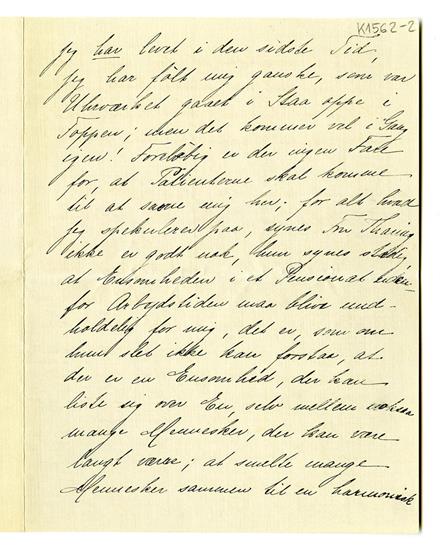 K1562-2
jeg har levet i den sidste Tid,
jeg har følt mig ganske, som var
Uhrværket gaaet i Staa oppe i
Toppen; men det kommer vel i Gang
igen! Foreløbig er der ingen Fare
for, at Patienterne skal komme
til at savne mig her; for alt hvad
jeg spekulerer paa, synes Frk Thaning
ikke er godt nok, hun synes stadig,
at Ensomheden i et Pensionat uden-
for Arbejdstiden maa blive uud-
holdelig for mig, det er, som om
hun slet ikke kan forstaa, at
der er en Ensomhed, der kan
liste sig over En, selv mellem
mange Mennesker, der kan være
langt værre; at smelte mange
Mennesker sammen til en harmonisk